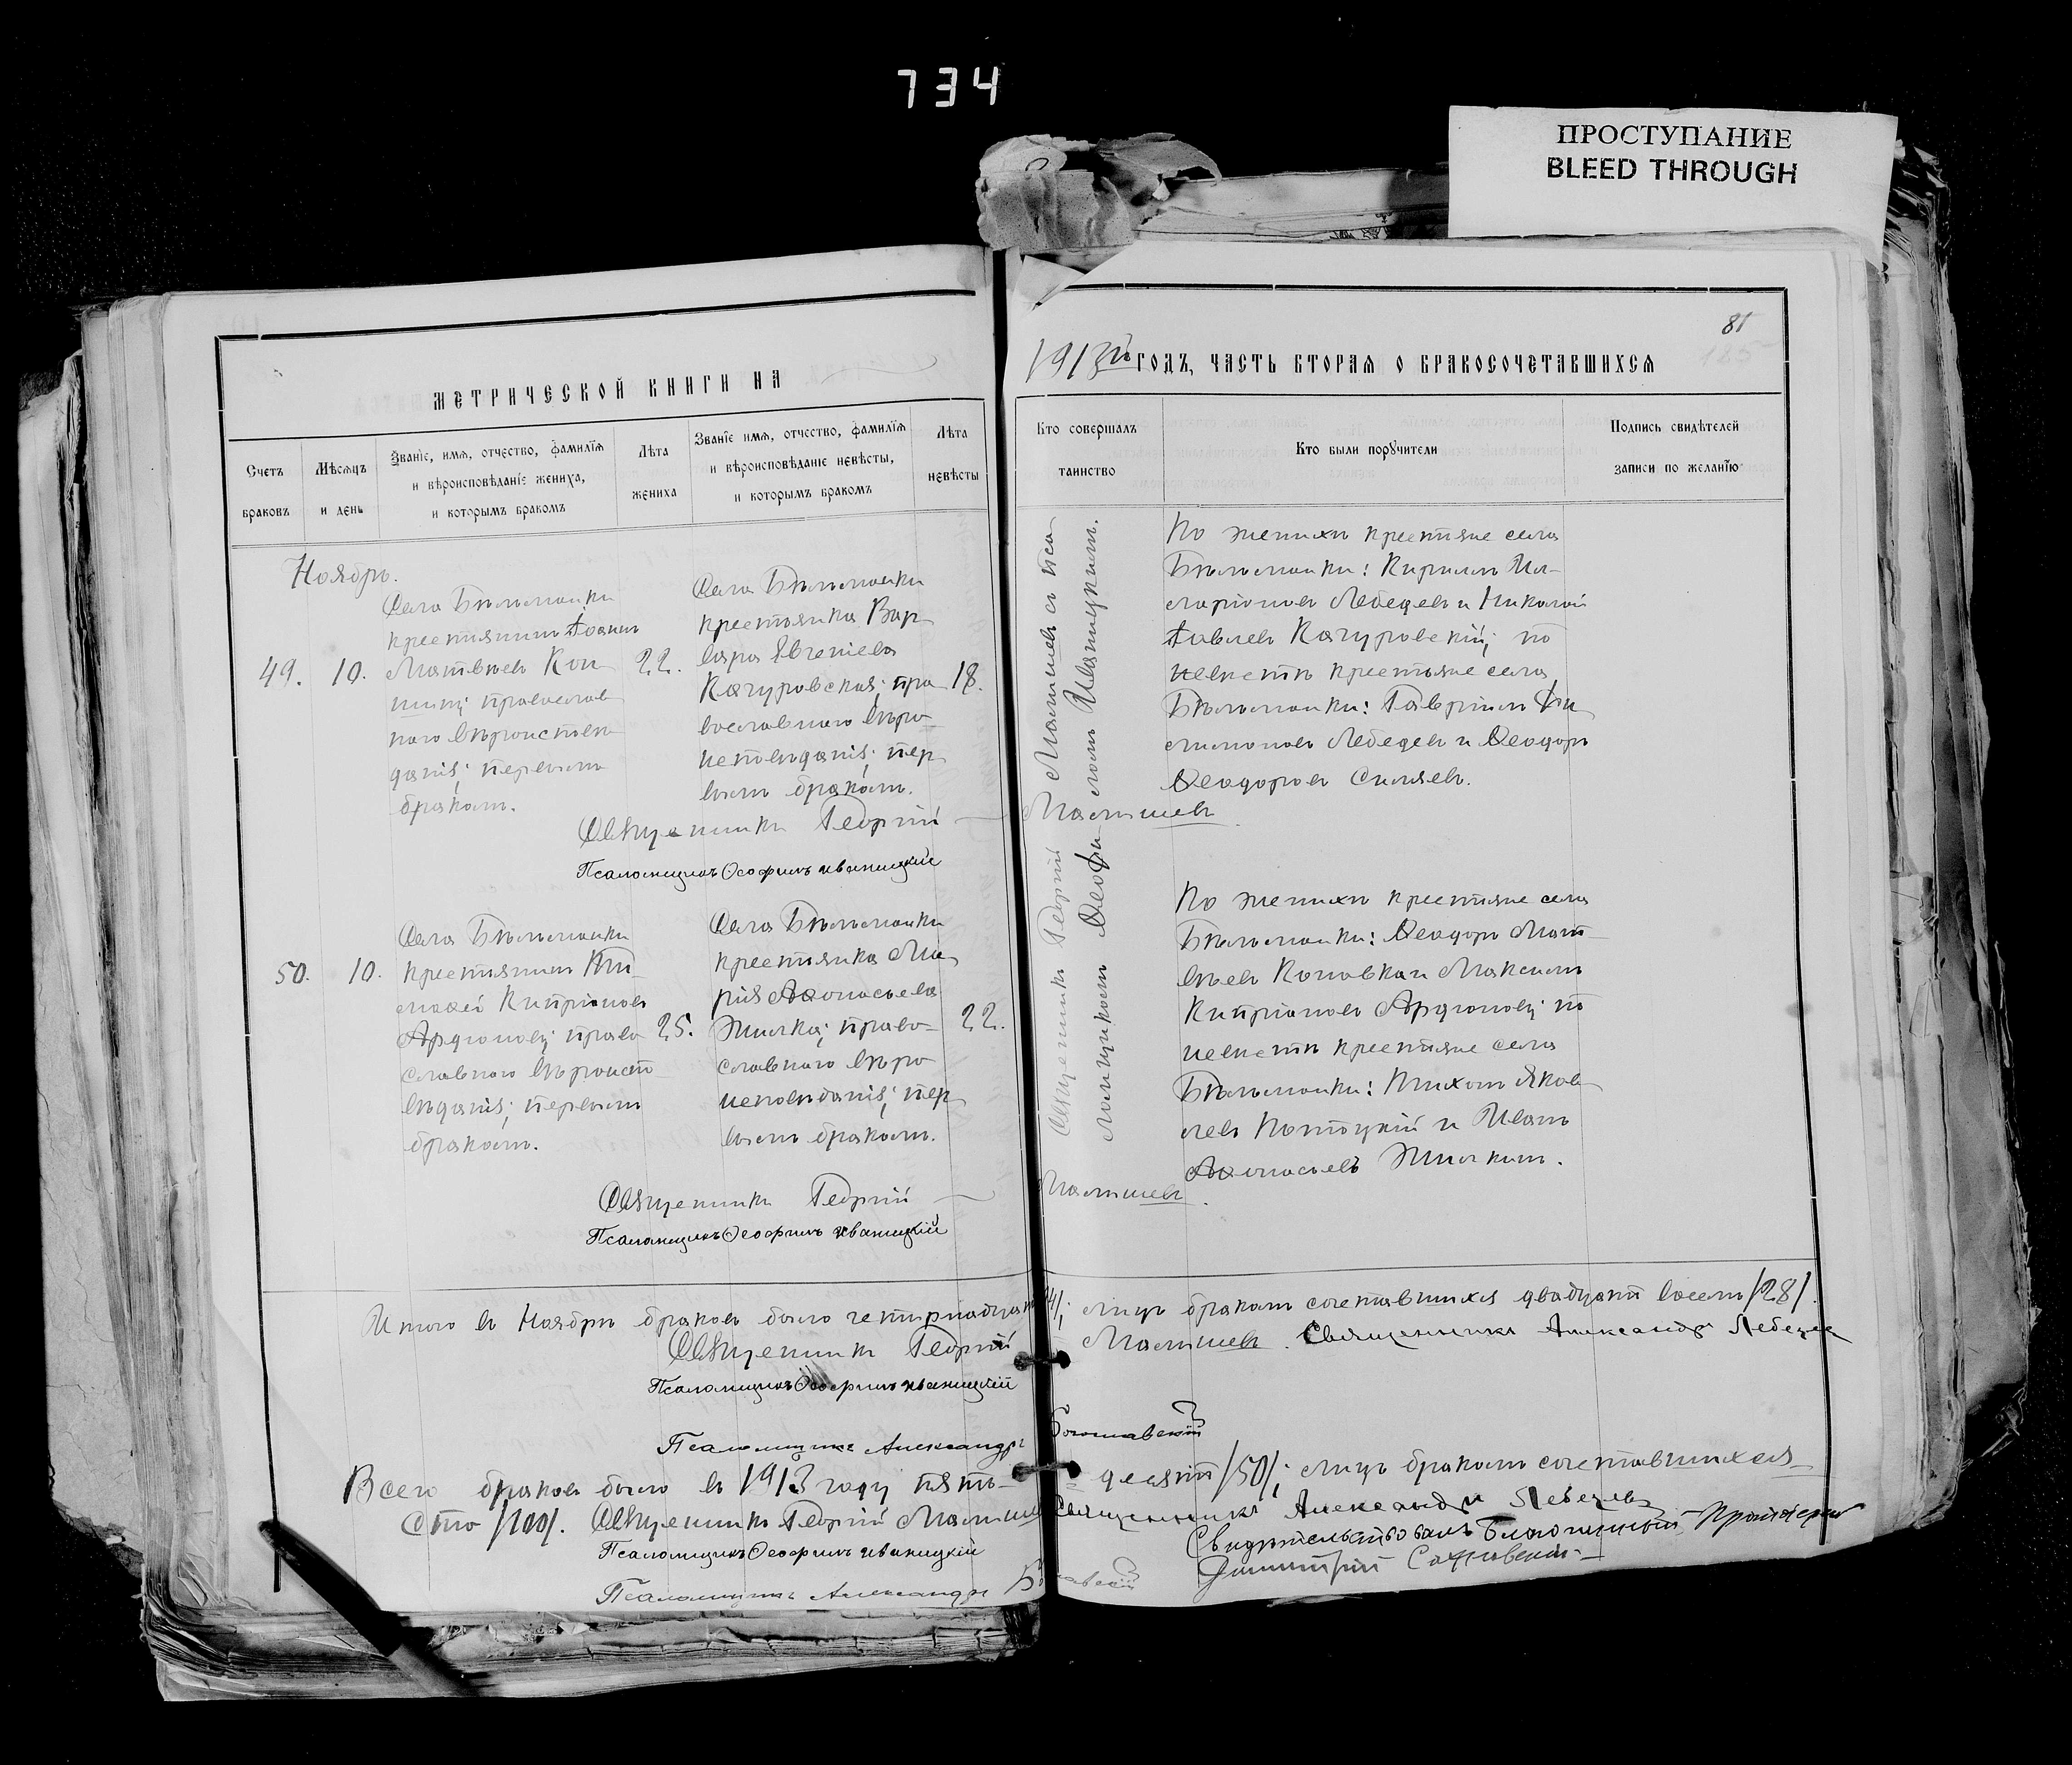 734
ПРОСТУПАНИЕ
BLEED THROUGH
81
МЕТРИЧЕСКОЙ КНИГИ НА
1913й ГОДЪ, ЧАСТЬ ВТОРАЯ О БРАКОСОЧЕТАВШИХСЯ
Счетъ браковъ
Мѣсяцъ и день
Званіе, имя, отчество, фамилія и вѣроисповѣданіе жениха, и которымъ бракомъ
Лѣта жениха
Званіе имя, отчество, фамилія и вѣроисповѣданіе невѣсты, и которымъ бракомъ
Лѣта невѣсты
Кто совершалъ таинство
Кто были поручители
Подпись свидѣтелей записи по желанію
Ноябрь.
49.
10.
Села Бѣльманки
крестьянинъ Іоаннъ
Матвѣевъ
православ
наго вѣроисповѣ
данія; первымъ
бракомъ.
22.
Села Бѣльманки
крестьянка Вар
вара Евгеніева
Качуровская; пра
вославнаго вѣро
исповѣданія; пер
вымъ бракомъ.
18.
Священникъ Георгій
Псаломщикъ Ѳеофилъ Иваницкій
По женихѣ крестьяне села
Бѣльманки: Кириллъ Ил
ларіоновъ Лебедевъ и Николай
Павловъ Качуровскій; по
невѣстѣ крестьяне села
Бѣльманки: Гавріилъ Фи
лимоновъ Лебедевъ и Ѳеодоръ
Ѳеодоровъ Силяевъ.
50.
10.
Села Бѣльманки
крестьянинъ Ти
моѳей Кипріановъ
право
славнаго вѣроиспо
вѣданія; первымъ
бракомъ.
25.
Села Бѣльманки
крестьянка Ма
рія Аѳанасьева
Жилка; право
славнаго вѣро
исповѣданія; пер
вымъ бракомъ.
22.
Священникъ Георгій
Псаломщикъ Ѳеофилъ Иваницкій
По женихѣ крестьяне села
Бѣльманки: Ѳеодоръ Мат
вѣевъ и Максимъ
Кипріановъ по
невѣстѣ крестьяне села
Бѣльманки: Тихонъ Яков
левъ Потоцкій и Иванъ
Аѳанасьевъ Жилкинъ.
Священникъ Георгій съ пса
ломщикомъ Ѳеофиломъ Иваницкимъ.
Итого въ Ноябрѣ браковъ было четырнадцать /14/; лицъ бракомъ сочетавшихся двадцать восемь /28/.
Священникъ Георгій Священникъ Александръ Лебедев
Псаломщикъ Ѳеофилъ Иваницкій
Псаломщикъ Александръ
Всего браковъ было въ 1913 году пять
десятъ /50/; лицъ бракомъ сочетавшихся
Сто /100/. Священникъ Георгій Священникъ Александръ Лебедевъ
Псаломщикъ Ѳеофилъ Иваницкій
Псаломщикъ Александръ
Свидѣтельствовалъ Благочинный Протоіерей
Димитрій